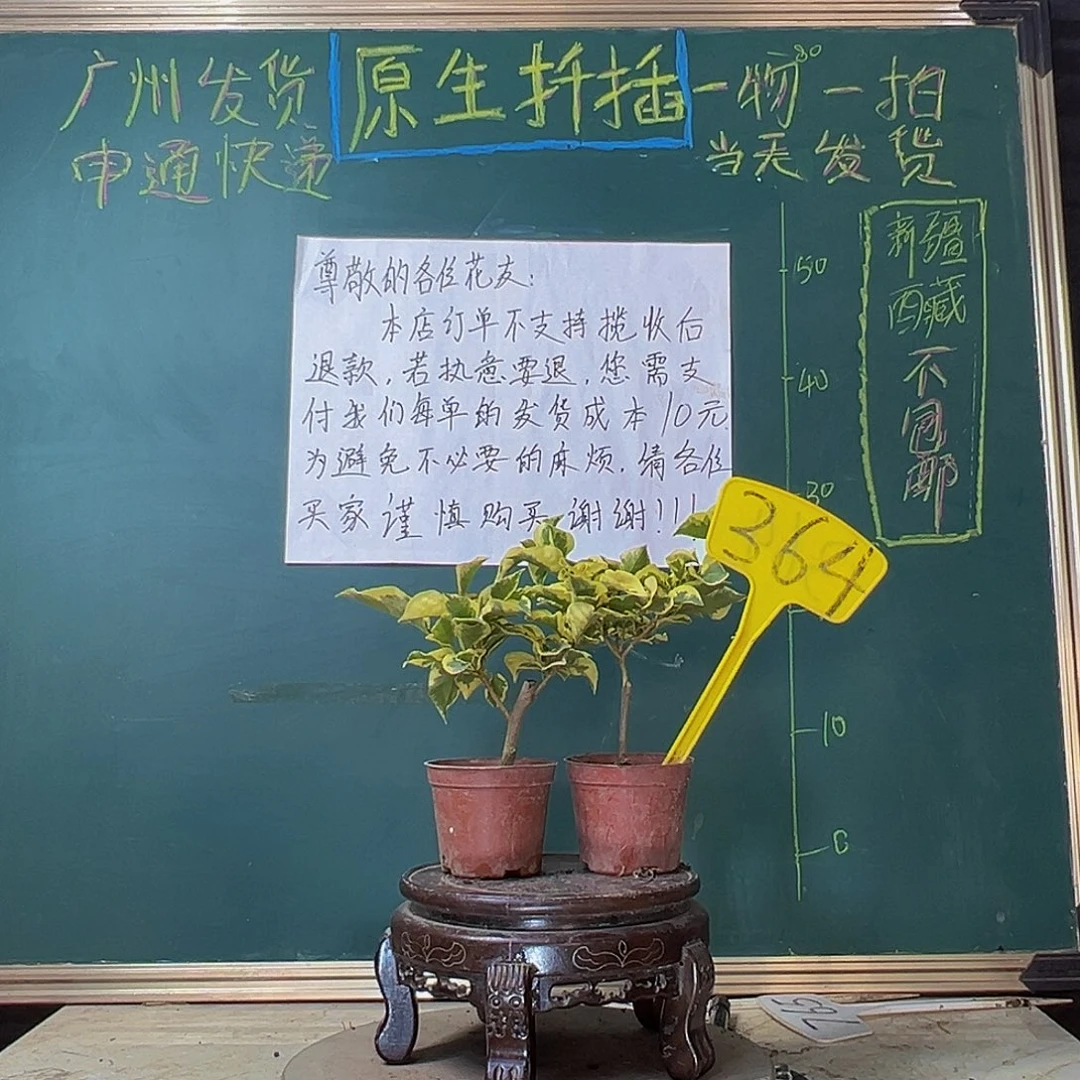 广州发货
申通快递
原生扦插
一物一拍
当天发货
尊敬的各位花友:
本店订单不支持揽收后
退款,若执意要退,您需支
付我们每单的发货成本10元
为避免不必要的麻烦.请各位
买家谨慎购买谢谢!!!
新疆
西藏
不包邮
50
40
30
10
0
364